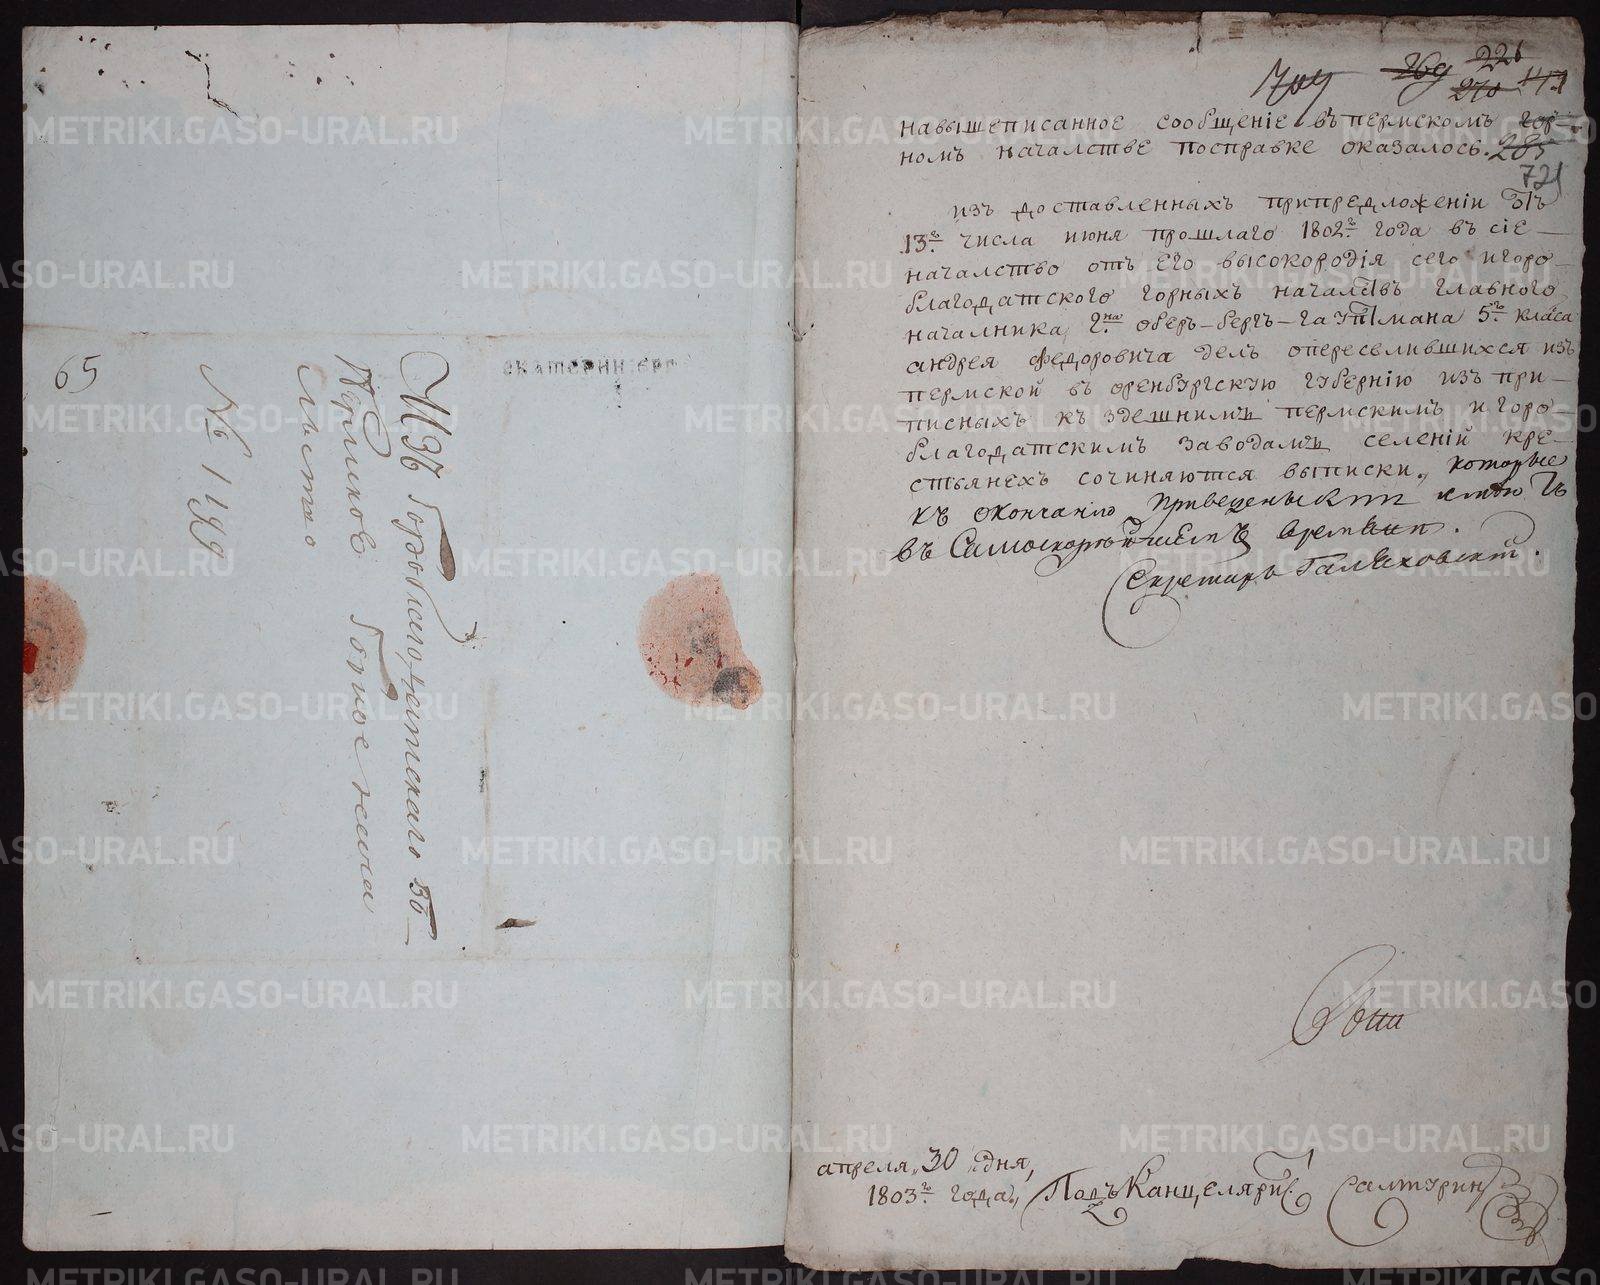 65
Екатеринбергъ
Изъ Гороблагодатскаго въ
Пермское Горное Нача
льство
№ 1199
269 226
270
навышеписанное сообщеніе въ пермскомъ гор-
номъ началстве посправке оказалось.
285
721
изъ доставленныхъ припредложеніи отъ
13го числа июня прошлаго 1802го года въ сіе
началство отъ его высокородія сего игоро-
благодатского горныхъ началствъ главного
началника, гна оберъ-бергъ-гауптмана 5го класа
андрея федоровича делъ опереселившихся изъ
пермской въ оренбургскую губернію изъ при-
писныхъ къ здешнимъ пермскимъ и горо-
благодатскимъ заводамъ селеній кре-
стьянехъ сочиняются выписки, которые
къ окончанію приведены имеютъ
въ Самоскорейшемъ времени.
Секретарь
апреля 30 дня,
1803го года, Подъканцеляристъ Салтурин
METRIKI.GASO-URAL.RU